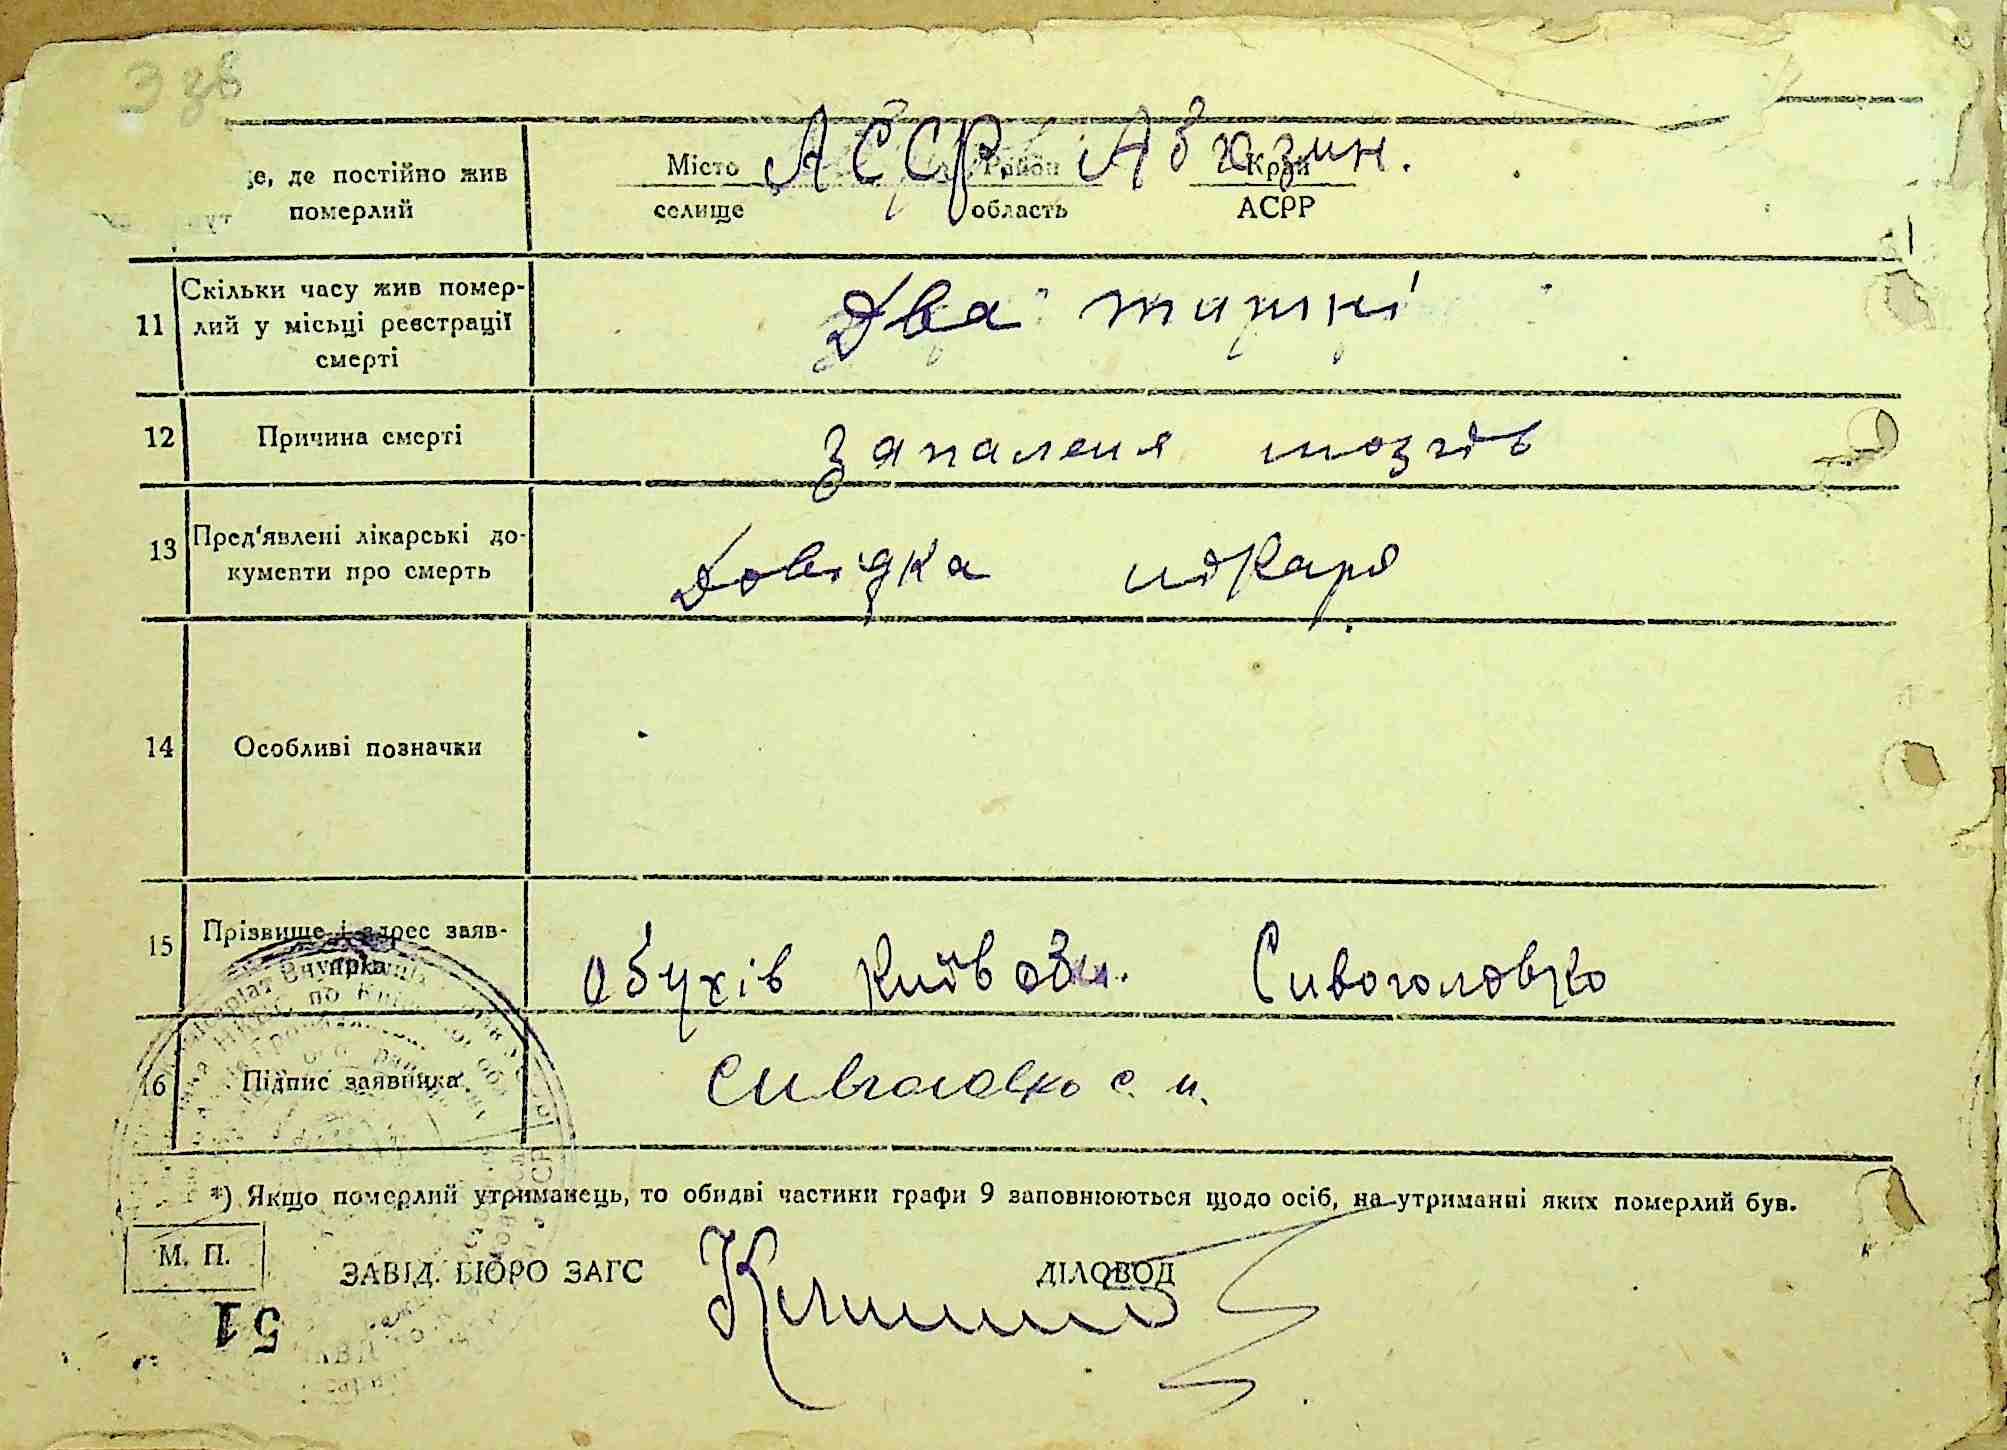 це, де постійно жив
померлий
Місто Район Край
селище область АСРР
АССР, Абхазин.
11 Скільки часу жив помер-
лий у місьці реєстрації
смерті
Два тижні
12 Причина смерті
Запаленя мозгів
13 Пред'явлені лікарські до-
кументи про смерть
Довідка лікаря
14 Особливі позначки
15 Прізвище і адрес заяв-
Обухів Київ обл. Сивоголовко
16 Підпис заявника
Сивоголовко С. И.
*) Якщо померлий утриманець, то обидві частини графи 9 заповнюються щодо осіб, на утриманні яких померлий був.
М. П.
ЗАВІД. БЮРО ЗАГС ДІЛОВОД
51